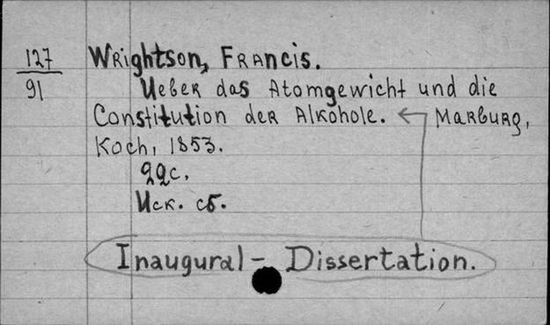 127
91
Wrightson, Francis.
Ueber das Atomgewicht und die
Constitution der Alkohole. ← Marburg,
Koch, 1853.
22c.
Иск. сб.
Inaugural - Dissertation.